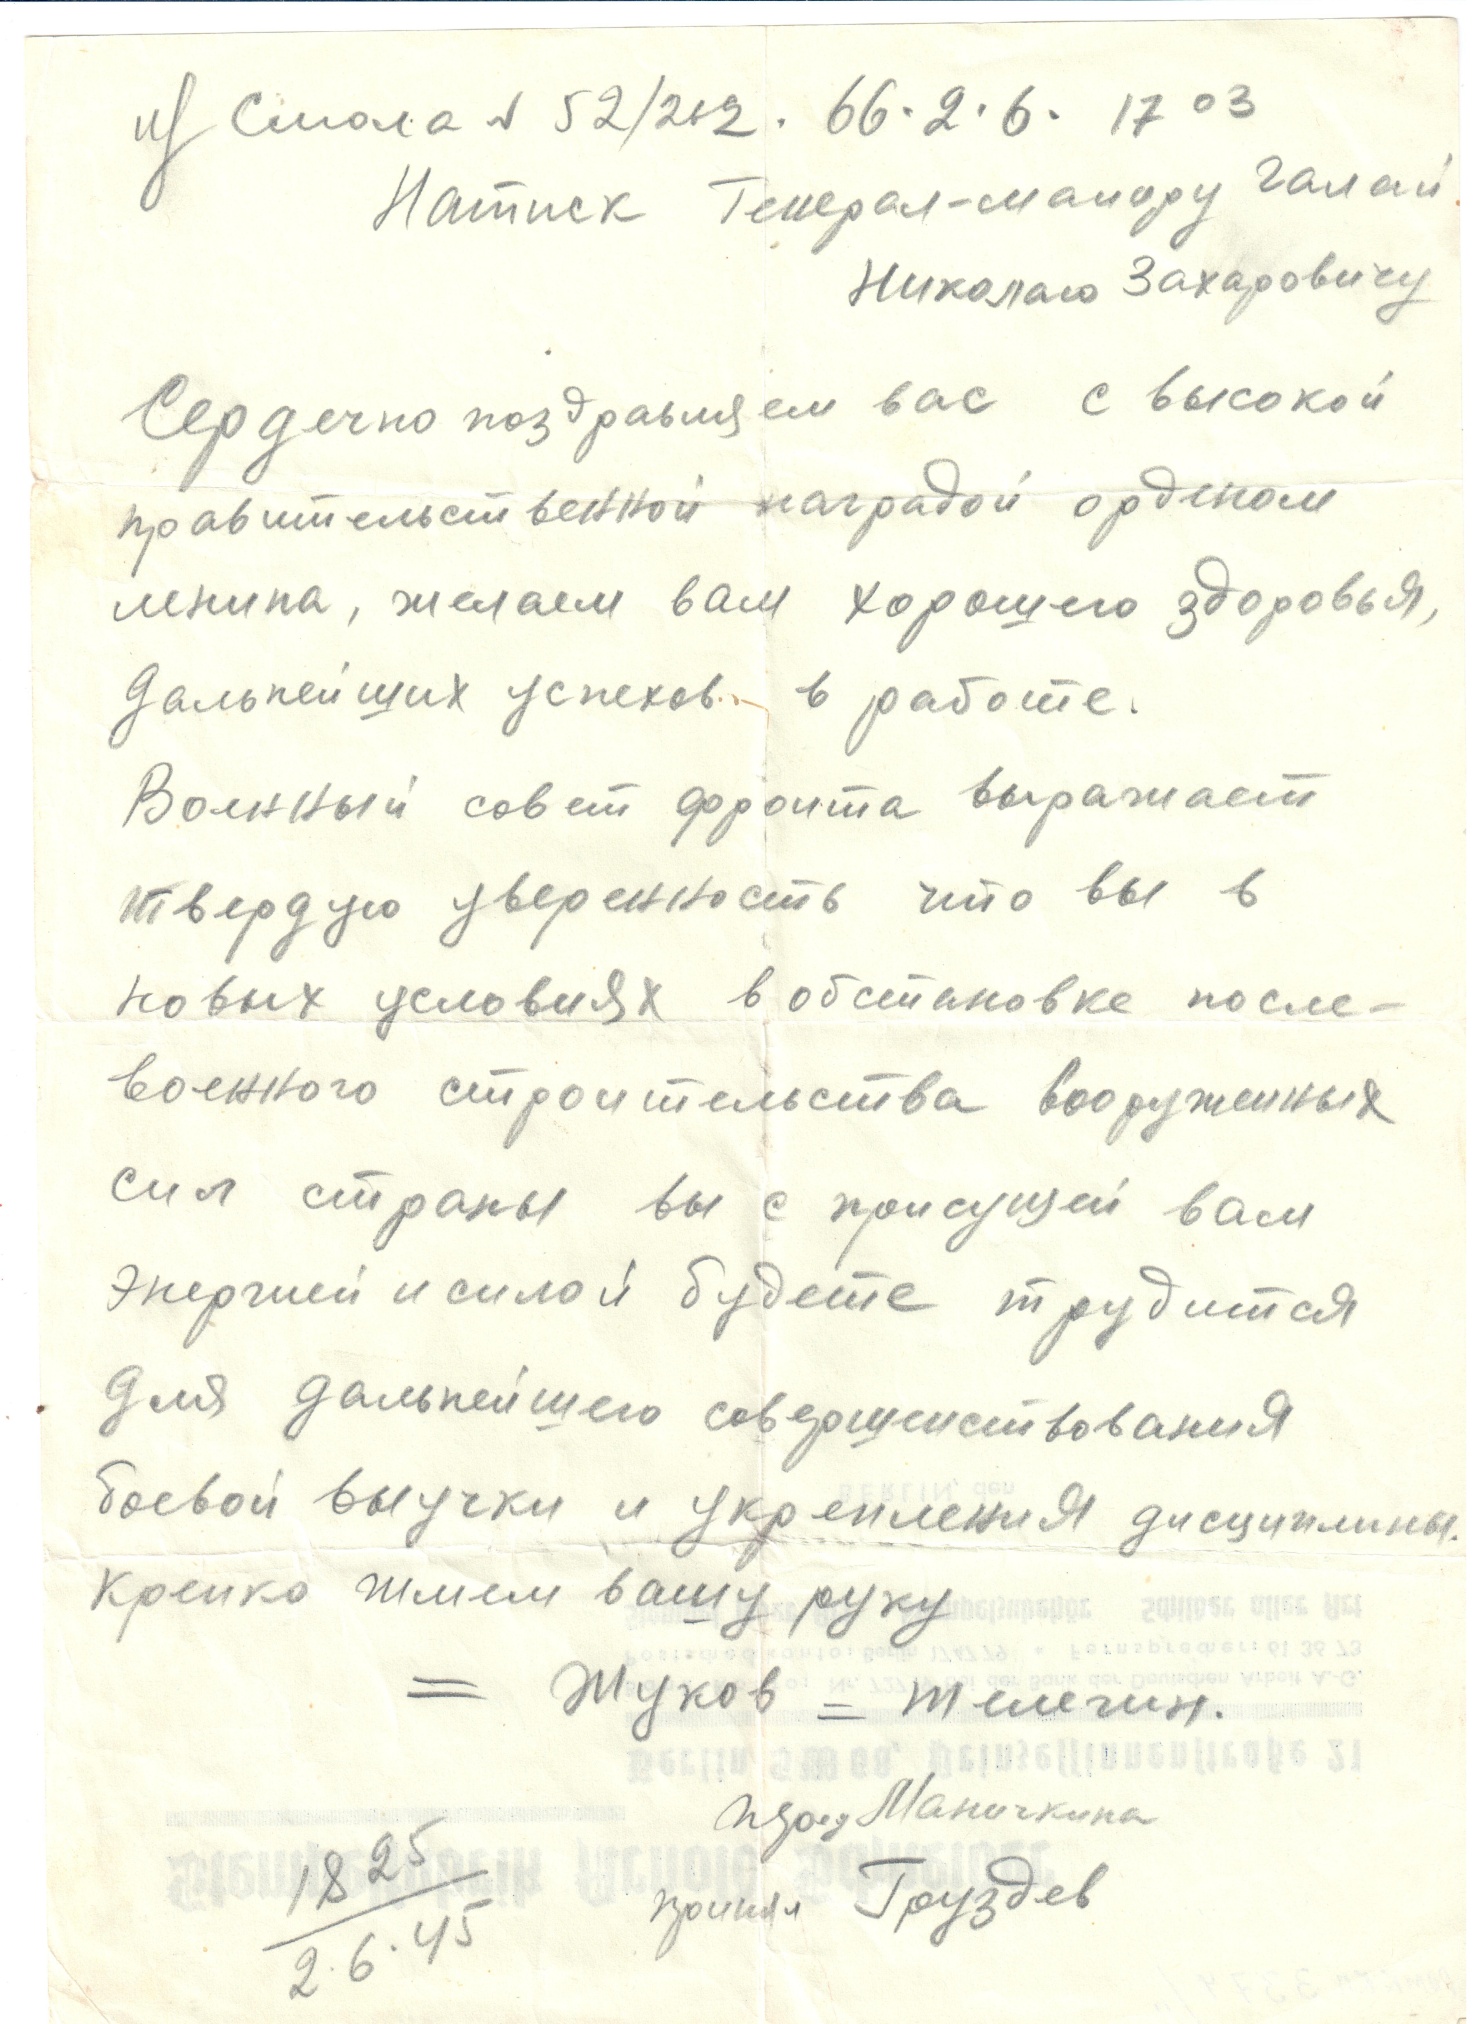 Смола № 52/262. 66. 2. 6. 17 03
Натиск Генерал-майору Галай
Николаю Захаровичу
Сердечно поздравляем вас с высокой
правительственной наградой орденом
ленина, желаем вам хорошего здоровья,
дальнейших успехов в работе.
Военный совет фронта выражает
твердую уверенность что вы в
новых условиях в обстановке после-
военного строительства вооруженных
сил страны вы с присущей вам
энергией и силой будете трудится
для дальнейшего совершенствования
боевой выучки и укрепления дисциплины.
Крепко жмем вашу руку
= Жуков = телегин.
Маничкина
принял Груздев
18 25
2.6.45
BERLIN, den
Stempelzubehör Schilder aller Art
Postscheckkonto: Berlin 174779 * Fernsprecher: 61 36 73
bei der Bank der Deutschen Arbeit A.-G.
Berlin SW 68, Prinzessinnenstraße 21
Stempelfabrik Arnold